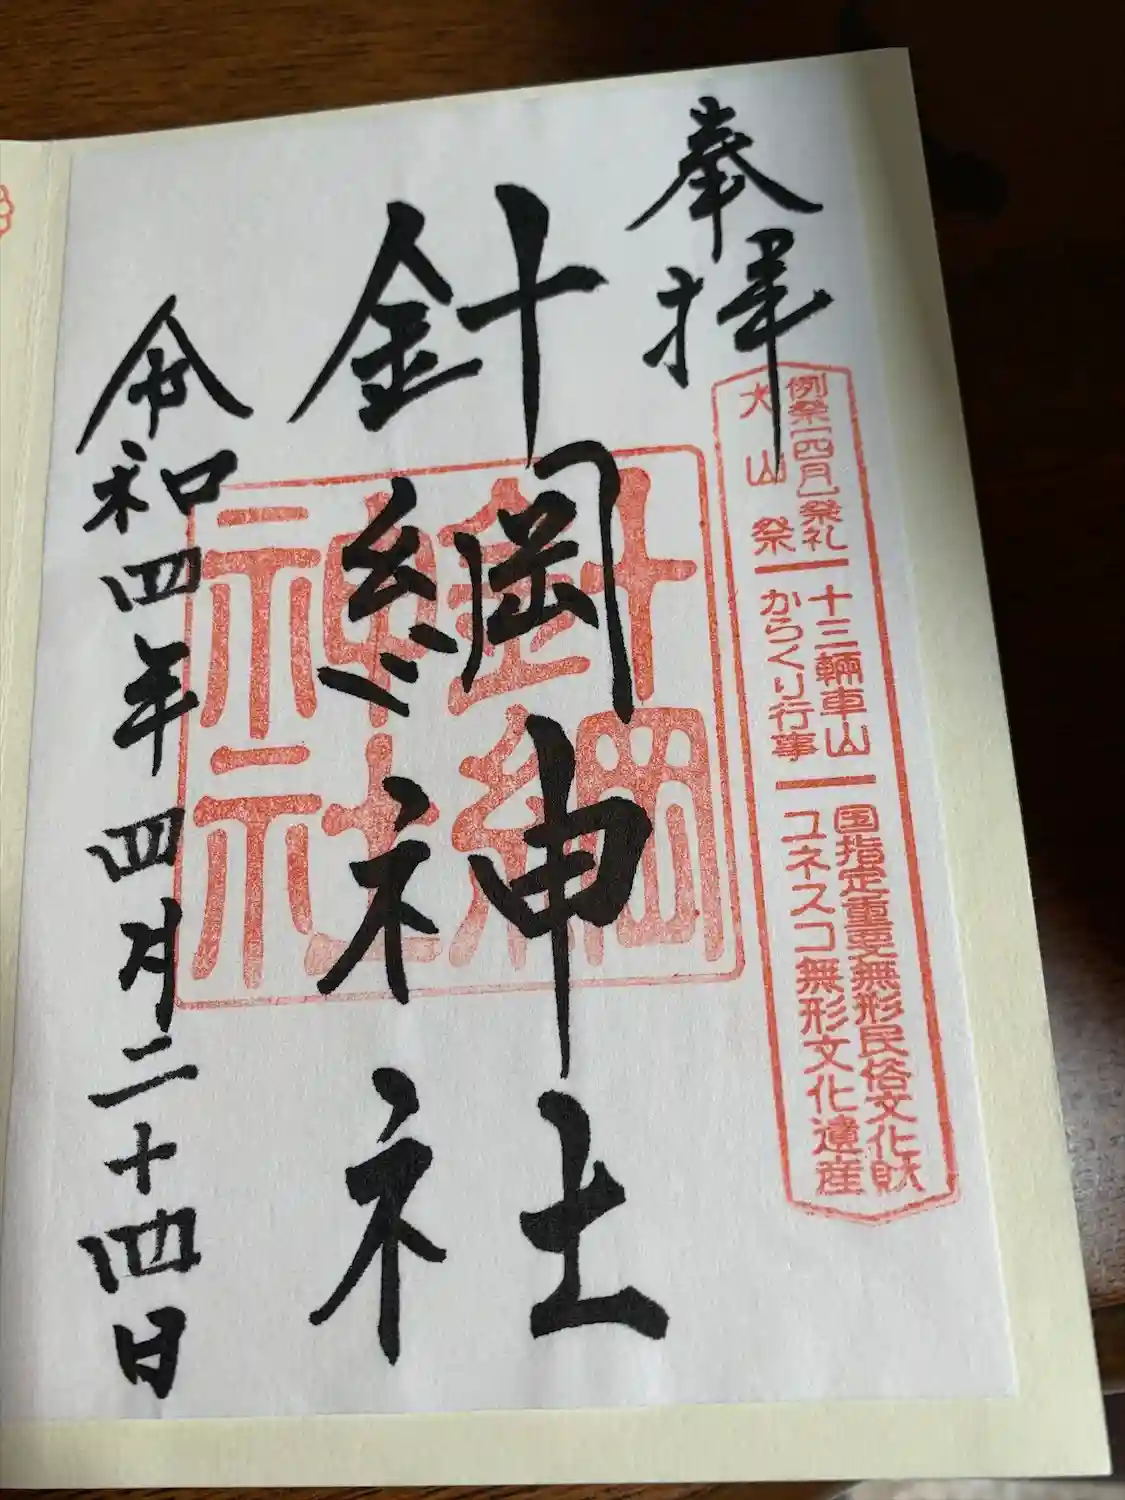 奉拝
例祭[四月]祭礼
犬山祭
十三輛車山
からくり行事
国指定重要無形民俗文化財
ユネスコ無形文化遺産
針綱神社
針綱
神社
令和四年四月二十四日